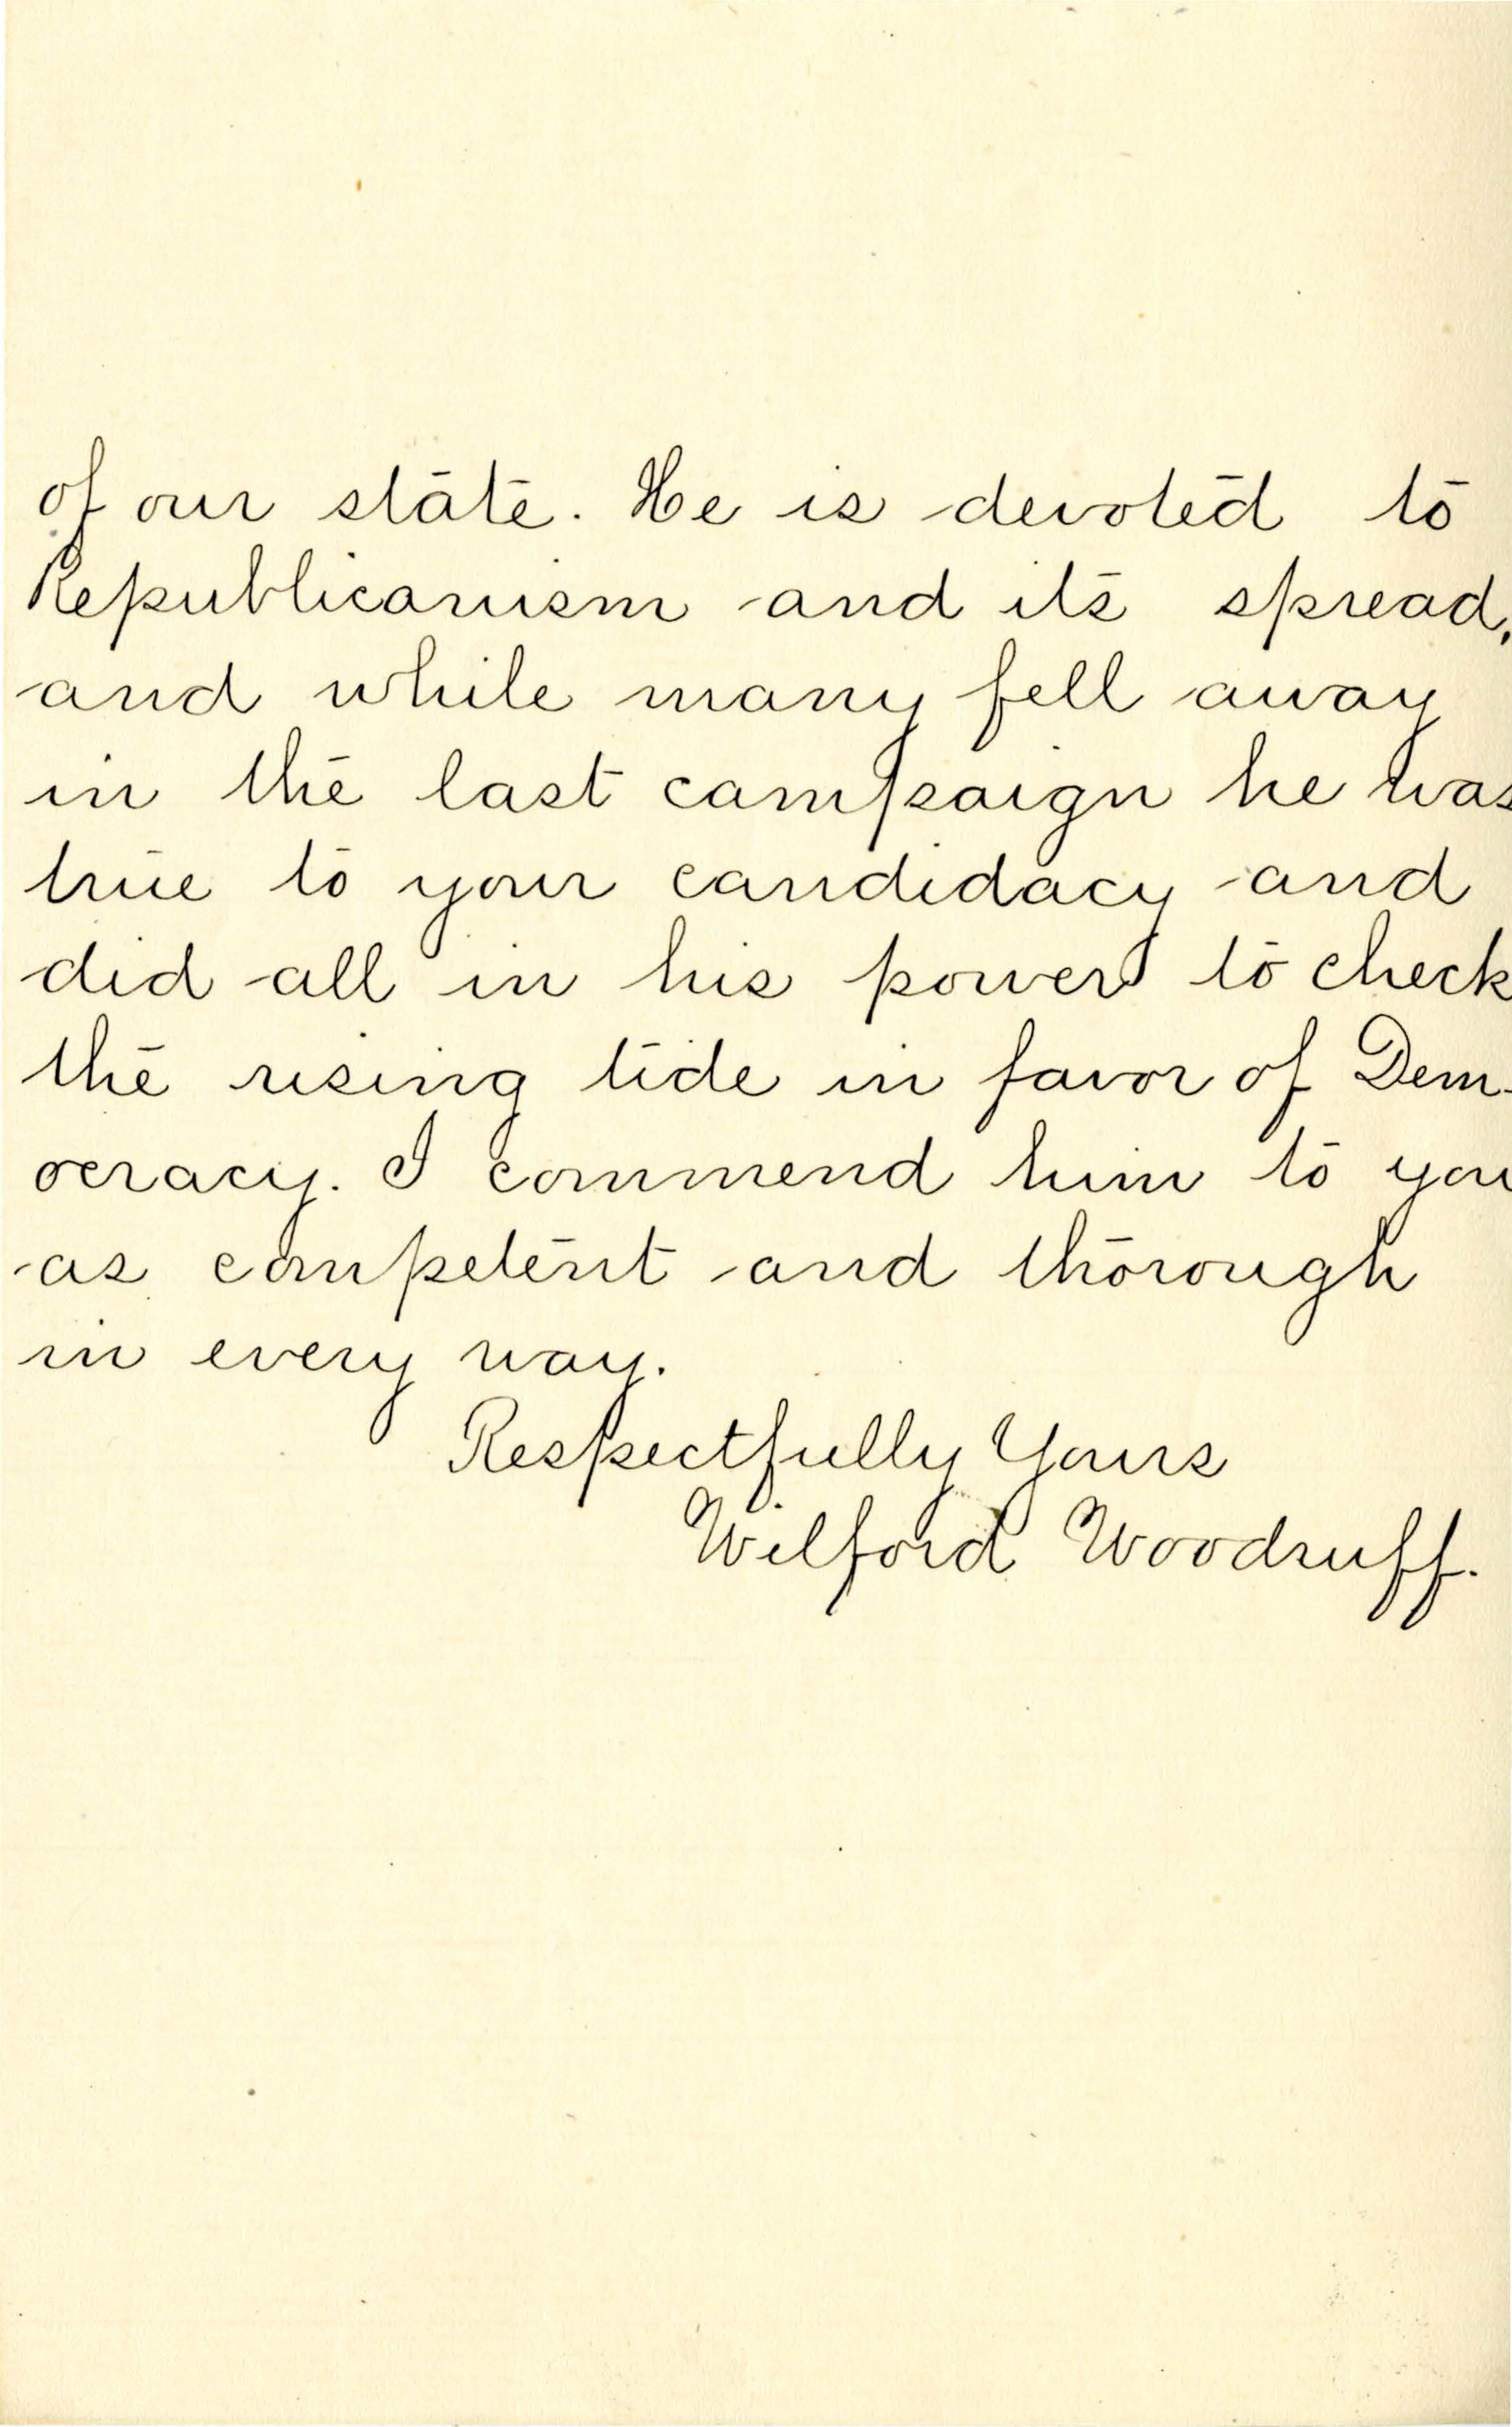 of our state. He is devoted to
Republicanism and its spread,
and while many fell away
in the last campaign he was
true to your candidacy and
did all in his power to check
the rising tide in favor of Dem-
ocracy. I commend him to you
as competent and thorough
in every way.
Respectfully Yours
Wilford Woodruff.